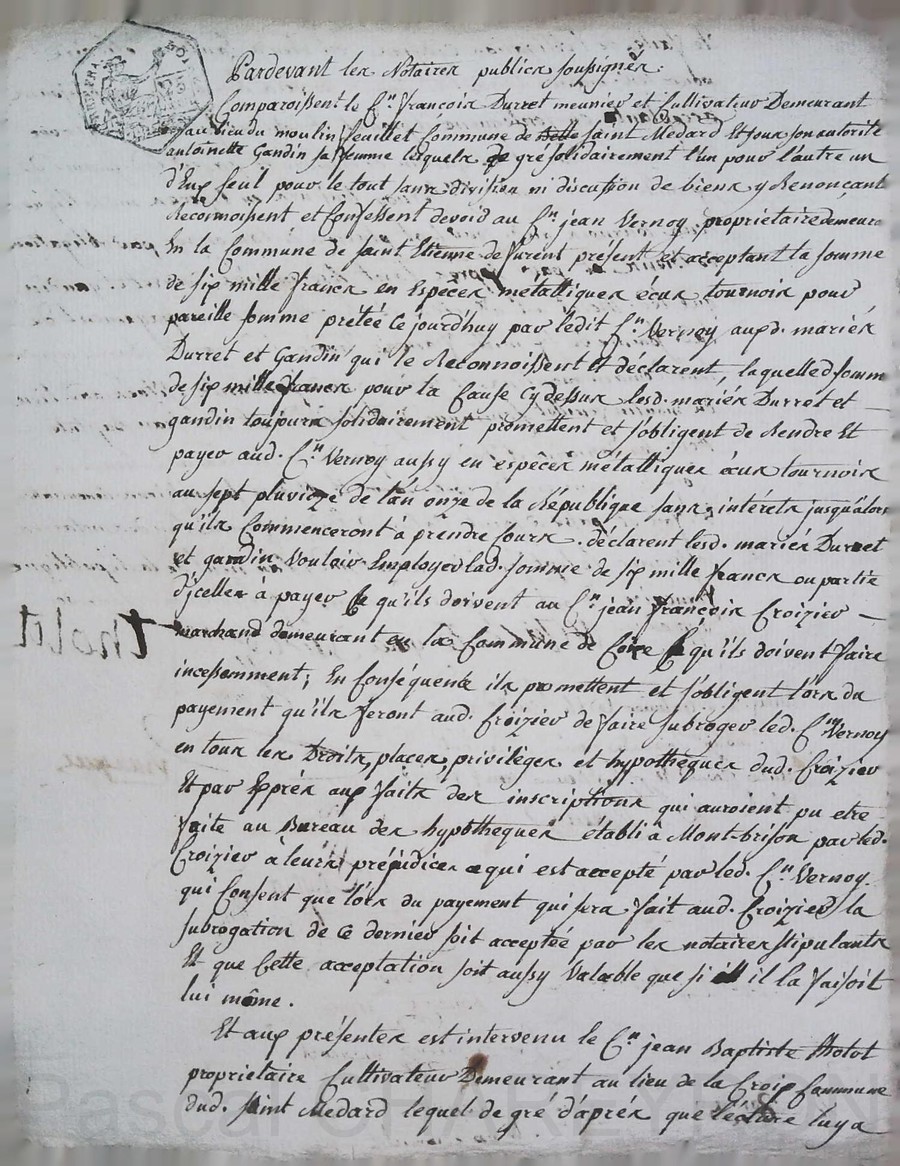 Pardevant les Notaires publics soussignés :
Comparoissent le C.en françois Durret meunier et Cultivateur Demeurant
au lieu du moulin feuillet Commune de saint Medard Et sous son autorité
antoinette Gandin sa femme lesquels de gré solidairement l'un pour l'autre un
d'Eux seul pour le tout sans division ni discution de biens y Renonçant
Reconnoissent et Confessent devoir au C.en jean Vernoy propriétaire demeurt
En la Commune de saint Etienne de furent présent et acceptant la somme
de six mille francs en Espêces métalliques écus tournois pour
pareille somme pretée Ce jourd'huy par ledit C.en Vernoy auxd. mariés
Durret et Gandin qui le Reconnoissent Et déclarent, laquelled somme
de six mille francs pour la Cause Cydessus lesd. mariés Durret et
gandin toujours solidairement promettent et s'obligent de Rendre Et
payer aud. C.en Vernoy aussy en espêces métalliques écus tournois
au sept pluviôze de l'an onze de la République sans intérets jusqu'alors
qu'ils Commenceront à prendre Cours . déclarent lesd. mariés Durret
et gandin Vouloir Employer lad. somme de six mille francs ou partie
d'jcelles à payer Ce qu'ils doivent au C.en jean françois Croizier
marchand demeurant en la Commune de Ce qu'ils doivent faire
incessamment ; En Consequence ils promettent et s'obligent lors du
payement qu'ils feront aud. Croizier de faire subroger led. C.en Vernoy
en tous les Droits, places, privilèges et hypothèques dud. Croizier
Et par Exprès aux faits des inscriptions qui auroient pu etre
faite au Bureau des hypothèques établi à Mont-brison par led.
Croizier à leurs préjudices ce qui est accepté par led. C.en Vernoy
qui Consent que lors du payement qui sera fait aud. Croizier la
subrogation de Ce dernier soit acceptée par les notaires stipulants
Et que Cette acceptation soit aussy Valable que si il la faisoit
lui même .
Et aux présentes est intervenu le C.en jean Baptiste tholot
proprietaire Cultivateur Demeurant au lieu de la Croix Commune
dud. saint Medard lequel de gré d'après que lecture luy a